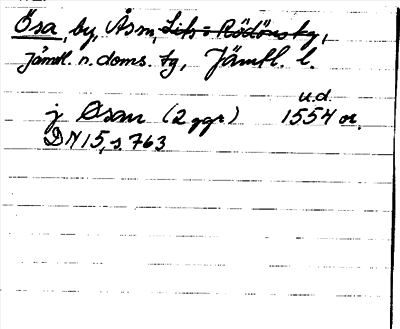 Ösa, by, Åsm, Lits o Rödöns tg,
Jämtl. n. doms. tg, Jämtl. l.
u.d.
j Øsan (2 ggr) 1554 or.
DN 15, s. 763